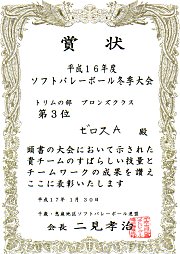 賞状
平成16年度
ソフトバレーボール冬季大会
トリムの部 ブロンズクラス
第3位
ゼロスA 殿
頭書の大会において示された
貴チームのすばらしい技量と
チームワークの成果を讃え
ここに表彰いたします
平成17年1月30日
千歳・恵庭地区ソフトバレーボール連盟
会長 二見孝治